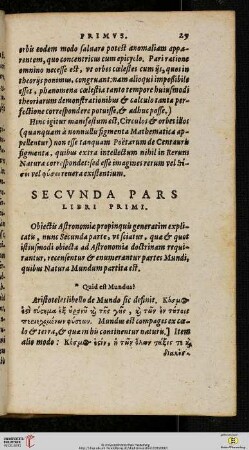 PRIMVS. 29
orbis eodem modo saluare potest anomaliam appa-
rentem, quo concentricus cum epicyclo. Pari ratione
omnino necesse est, vt orbes cælestes cum ijs, quos in
theorijs ponimus, congruant: nam alioqui impoßibile
esset, phænomena cœlestia tanto tempore huiusmodi
theoriarum demonstrationibus & calculo tanta per-
fectione correspondere potuisse, & adhuc posse.
Hinc igitur manifestum est, Circulos & orbes illos
(quanquam à nonnullis figmenta Mathematica ap-
pellentur) non esse tanquam Poëtarum de Centauris
figmenta, quibus extra intellectum nihil in Rerum
Natura correspondet: sed esse imagines rerum vel
vel reuera existentium.
SECVNDA PARS
LIBRI PRIMI.
Obiectis Astronomiæ propinquis generatim expli-
catis, nunc Secunda parte, vt sciatur, quæ & quot
istiusmodi obiecta ad Astronomiæ doctrinam requi-
rantur, recensentur & enumerantur partes Mundi,
quibus Natura Mundum partita est.
* Quid est Mundus?
Aristoteles libello de Mundo sic definit, Κόσμος
ἐστὶ σύστημα ἐξ οὐρανοῦ καὶ τῆς γῆς, καὶ τῶν ἐν τούτοις
περιεχομένων φύσεων. Mundus est compages ex cæ-
lo & terra, & quæ in his continentur naturis.] Item
alio modo: Κόσμος ἐστὶν, ἡ τῶν ὅλων τάξις τε καὶ